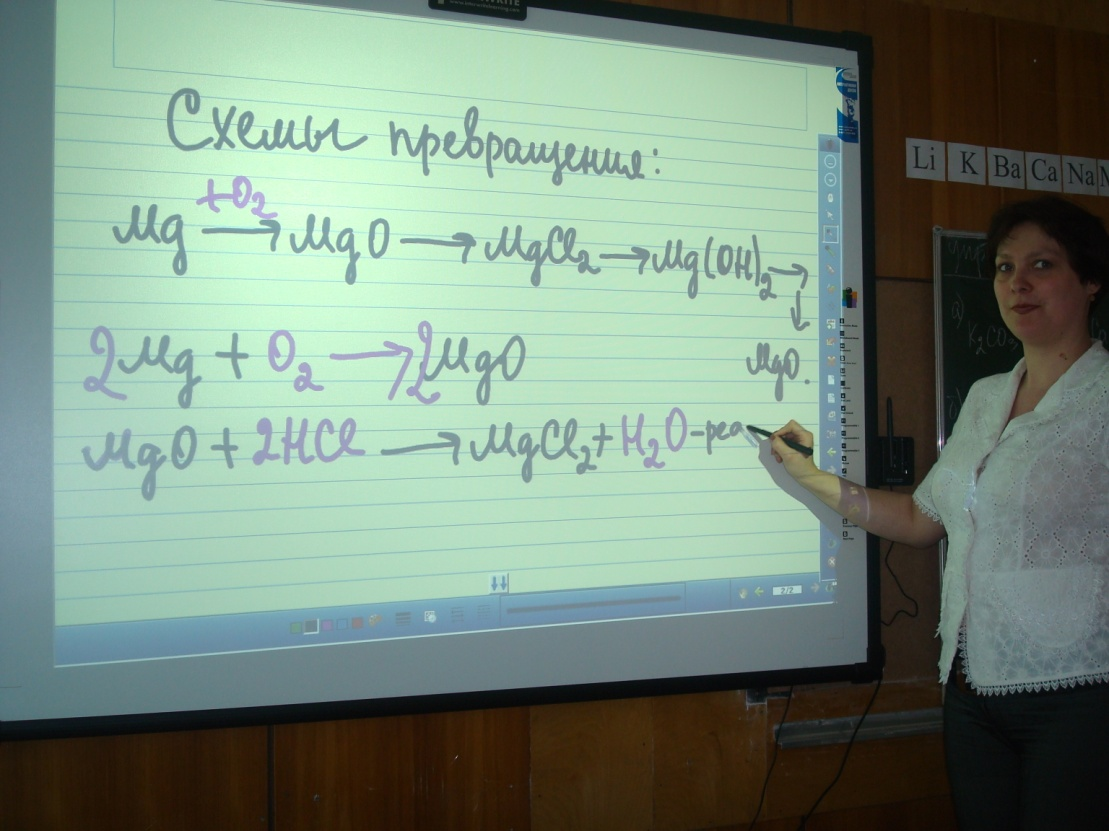 Схемы превращения:
+O₂
Mg → MgO → MgCl₂ → Mg(OH)₂ →
↓
MgO.
2Mg + O₂ → 2MgO
MgO + 2HCl → MgCl₂ + H₂O - реа
Li K Ba Ca Na
а) K₂CO₃
2/2